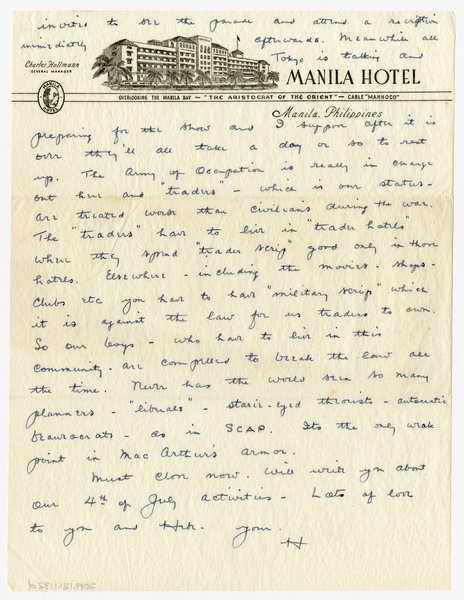 invites to see the parade and attend a reception
immediately afterwards. Meanwhile all
Tokyo is talking and
Charles Hollmann
GENERAL MANAGER
MANILA HOTEL
OVERLOOKING THE MANILA BAY — "THE ARISTOCRAT OF THE ORIENT" — CABLE "MANHOCO"
Manila, Philippines
preparing for the show and I suppose after it is
over they'll all take a day or so to rest
up. The Army of Occupation is really in charge
out here and "traders" - which is our status -
are treated worse than civilians during the war.
The "traders" have to live in "trader hotels"
where they spend "trader scrip" good only in those
hotels. Elsewhere - including the movies - shops -
clubs etc you have to have "military scrip" which
it is against the law for us traders to own.
So our boys - who have to live in this
community - are compelled to break the law all
the time. Never has the world seen so many
planners - "liberals" - starie-eyed theorists - autocratic
beaurocrats - as in SCAP. Its the only weak
point in Mac Arthur's armor.
Must close now. Will write you about
our 4th of July activities - Lots of love
to you and your.
H